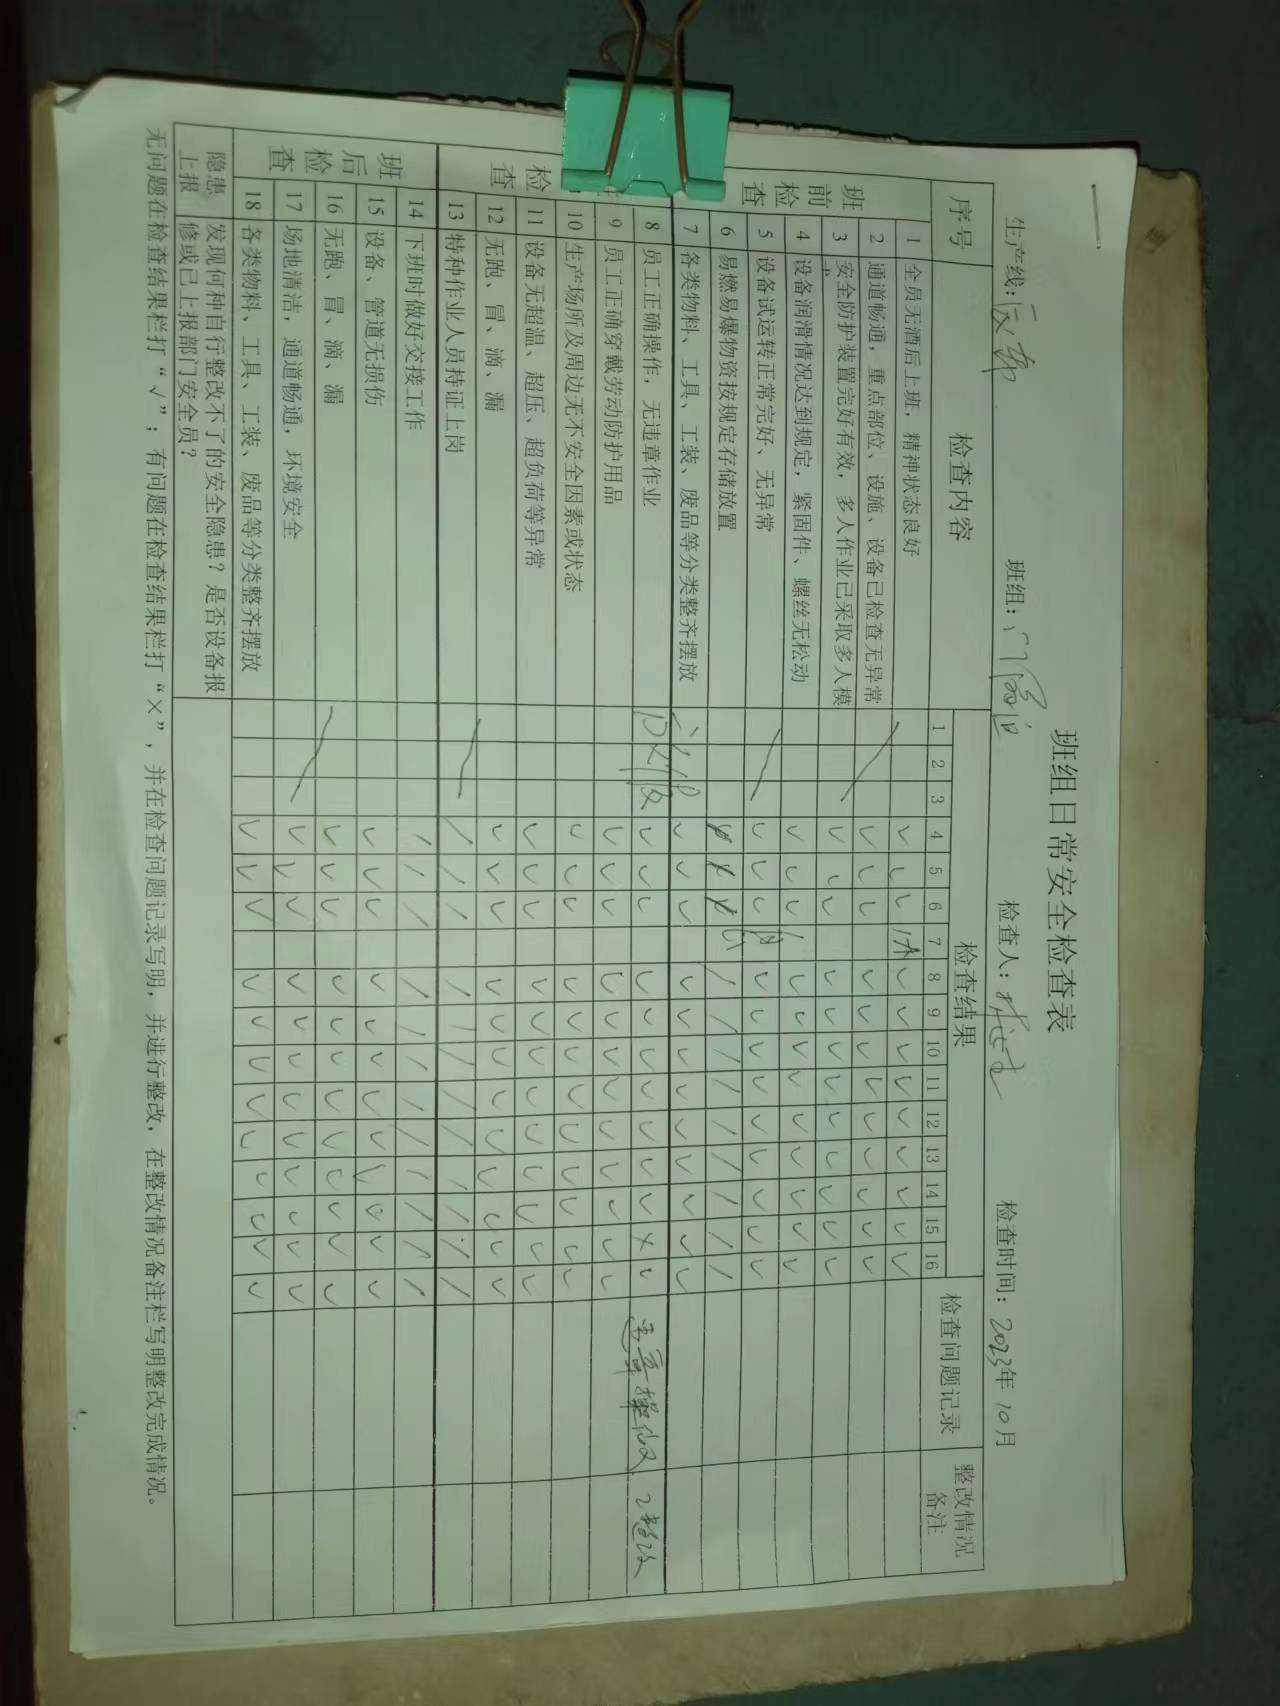 班组日常安全检查表
生产线： 班组： 检查人： 检查时间：2023年10月
序号 检查内容 检查结果 检查问题记录 整改情况备注
1 2 3 4 5 6 7 8 9 10 11 12 13 14 15 16
班前检查
1 全员无酒后上班，精神状态良好 √ √ √ √ √ √ √ √ √ √ √ √
2 通道畅通，重点部位、设施、设备已检查无异常 √ √ √ √ √ √ √ √ √ √ √ √
3 安全防护装置完好有效，多人作业已采取多人模 √ √ √ √ √ √ √ √ √ √ √ √
4 设备润滑情况达到规定，紧固件、螺丝无松动 √ √ √ √ √ √ √ √ √ √ √ √
5 设备试运转正常完好、无异常 √ √ √ √ √ √ √ √ √ √ √ √
6 易燃易爆物资按规定存储放置 / / / / / / / / /
7 各类物料、工具、工装、废品等分类整齐摆放 √ √ √ √ √ √ √ √ √ √ √ √
检查
8 员工正确操作，无违章作业 √ √ √ √ √ √ √ √ √ √ × √ 违章操作 已整改
9 员工正确穿戴劳动防护用品 √ √ √ √ √ √ √ √ √ √ √ √
10 生产场所及周边无不安全因素或状态 √ √ √ √ √ √ √ √ √ √ √ √
11 设备无超温、超压、超负荷等异常 √ √ √ √ √ √ √ √ √ √ √ √
12 无跑、冒、滴、漏 √ √ √ √ √ √ √ √ √ √ √ √
13 特种作业人员持证上岗 / / / / / / / / / / / /
班后检查
14 下班时做好交接工作 / / / / / / / / / / / /
15 设备、管道无损伤 √ √ √ √ √ √ √ √ √ √ √ √
16 无跑、冒、滴、漏 √ √ √ √ √ √ √ √ √ √ √ √
17 场地清洁，通道畅通，环境安全 √ √ √ √ √ √ √ √ √ √ √ √
18 各类物料、工具、工装、废品等分类整齐摆放 √ √ √ √ √ √ √ √ √ √ √ √
隐患上报 发现何种自行整改不了的安全隐患？是否设备报
修或已上报部门安全员？
无问题在检查结果栏打“√”；有问题在检查结果栏打“×”，并在检查问题记录写明，并进行整改，在整改情况备注栏写明整改完成情况。